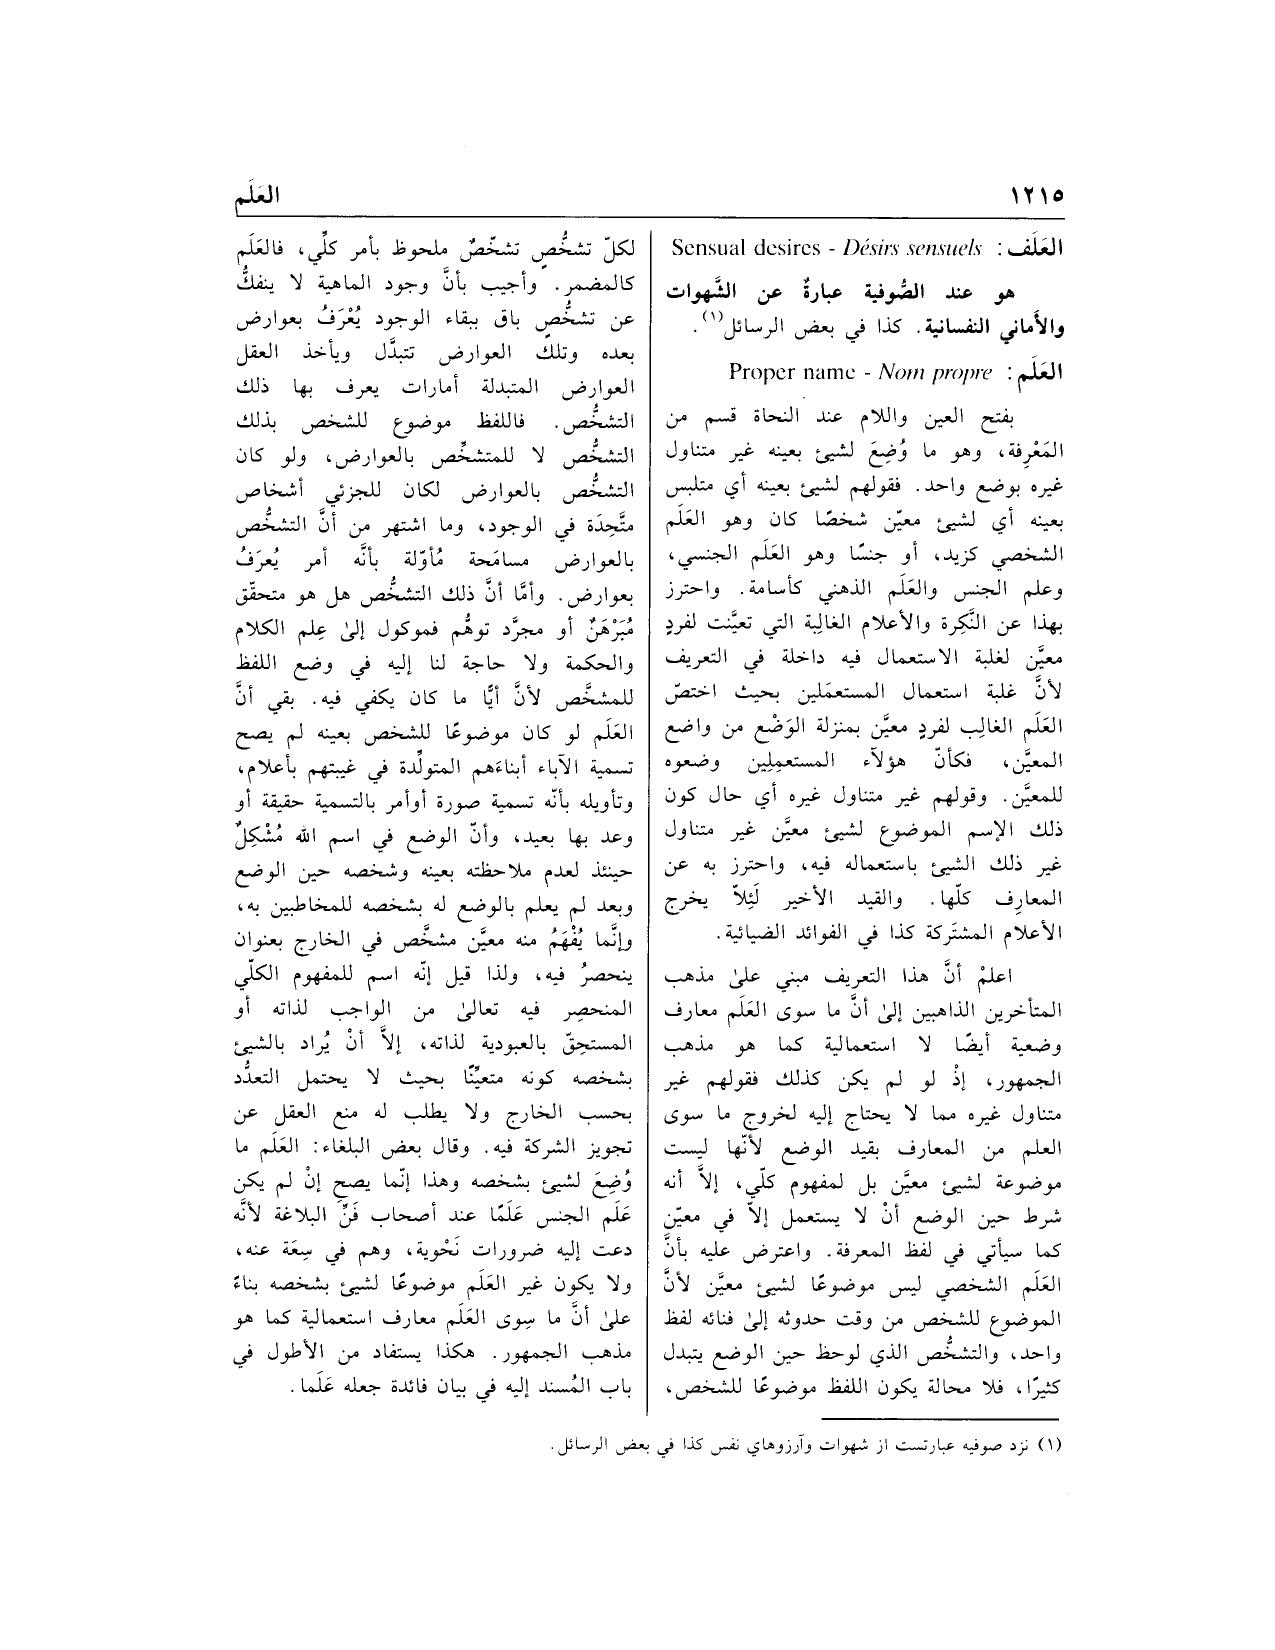 ١٢١٥
العَلَم
العَلَف: Sensual desires - Désirs sensuels
هو عند الصُّوفية عبارةٌ عن الشَّهوات
والأماني النفسانية. كذا في بعض الرسائل(١).
العَلَم: Proper name - Nom propre
بفتح العين واللام عند النحاة قسم من
المَعْرِفة، وهو ما وُضِعَ لشيئ بعينه غير متناول
غيره بوضع واحد. فقولهم لشيئ بعينه أي متلبس
بعينه أي لشيئ معيّن شخصًا كان وهو العَلَم
الشخصي كزيد، أو جنسًا وهو العَلَم الجنسي،
وعلم الجنس والعَلَم الذهني كأسامة. واحترز
بهذا عن النَّكِرة والأعلام الغالِبة التي تعيَّنت لفردٍ
معيَّن لغلبة الاستعمال فيه داخلة في التعريف
لأنَّ غلبة استعمال المستعمَلين بحيث اختصّ
العَلَم الغالِب لفردٍ معيَّن بمنزلة الوَضْع من واضع
المعيَّن، فكأنّ هؤلآء المستعمِلين وضعوه
للمعيَّن. وقولهم غير متناول غيره أي حال كون
ذلك الإسم الموضوع لشيئ معيَّن غير متناول
غير ذلك الشيئ باستعماله فيه، واحترز به عن
المعارِف كلّها. والقيد الأخير لَئِلاّ يخرج
الأعلام المشتَركة كذا في الفوائد الضيائية.
اعلمْ أنَّ هذا التعريف مبني علىٰ مذهب
المتأخرين الذاهبين إلىٰ أنَّ ما سوى العَلَم معارف
وضعية أيضًا لا استعمالية كما هو مذهب
الجمهور، إذْ لو لم يكن كذلك فقولهم غير
متناول غيره مما لا يحتاج إليه لخروج ما سوى
العلم من المعارف بقيد الوضع لأنّها ليست
موضوعة لشيئ معيَّن بل لمفهوم كلّي، إلاَّ أنه
شرط حين الوضع أنْ لا يستعمل إلاّ في معيّن
كما سيأتي في لفظ المعرفة. واعترض عليه بأنَّ
العَلَم الشخصي ليس موضوعًا لشيئ معيَّن لأنَّ
الموضوع للشخص من وقت حدوثه إلىٰ فنائه لفظ
واحد، والتشخُّص الذي لوحظ حين الوضع يتبدل
كثيرًا، فلا محالة يكون اللفظ موضوعًا للشخص،
لكلّ تشخُّصٍ تشخّصٌ ملحوظ بأمر كلّي، فالعَلَم
كالمضمر. وأجيب بأنَّ وجود الماهية لا ينفكُّ
عن تشخُّصٍ باق ببقاء الوجود يُعْرَفُ بعوارض
بعده وتلك العوارض تتبدَّل ويأخذ العقل
العوارض المتبدلة أمارات يعرف بها ذلك
التشخُّص. فاللفظ موضوع للشخص بذلك
التشخُّص لا للمتشخِّص بالعوارض، ولو كان
التشخُّص بالعوارض لكان للجزئي أشخاص
متَّحِدَة في الوجود، وما اشتهر من أنَّ التشخُّص
بالعوارض مسامَحة مُأوّلة بأنَّه أمر يُعرَفُ
بعوارض. وأمَّا أنَّ ذلك التشخُّص هل هو متحقّق
مُبَرْهَنٌ أو مجرَّد توهُّم فموكول إلىٰ عِلم الكلام
والحكمة ولا حاجة لنا إليه في وضع اللفظ
للمشخَّص لأنَّ أيًّا ما كان يكفي فيه. بقي أنَّ
العَلَم لو كان موضوعًا للشخص بعينه لم يصح
تسمية الآباء أبناءَهم المتولِّدة في غيبتهم بأعلام،
وتأويله بأنّه تسمية صورة أوأمر بالتسمية حقيقة أو
وعد بها بعيد، وأنّ الوضع في اسم الله مُشْكِلٌ
حينئذ لعدم ملاحظته بعينه وشخصه حين الوضع
وبعد لم يعلم بالوضع له بشخصه للمخاطبين به،
وإنَّما يُفْهَمُ منه معيَّن مشخَّص في الخارج بعنوان
ينحصرُ فيه، ولذا قيل إنّه اسم للمفهوم الكلّي
المنحصِر فيه تعالىٰ من الواجب لذاته أو
المستحقّ بالعبودية لذاته، إلاَّ أنْ يُراد بالشيئ
بشخصه كونه متعيِّنًا بحيث لا يحتمل التعدُّد
بحسب الخارج ولا يطلب له منع العقل عن
تجويز الشركة فيه. وقال بعض البلغاء: العَلَم ما
وُضِعَ لشيئ بشخصه وهذا إنّما يصح إنْ لم يكن
عَلَم الجنس عَلَمًا عند أصحاب فَنِّ البلاغة لأنَّه
دعت إليه ضرورات نَحْوية، وهم في سِعَة عنه،
ولا يكون غير العَلَم موضوعًا لشيئ بشخصه بناءً
علىٰ أنَّ ما سِوى العَلَم معارف استعمالية كما هو
مذهب الجمهور. هكذا يستفاد من الأطول في
باب المُسند إليه في بيان فائدة جعله عَلَما.
(١) نزد صوفيه عبارتست از شهوات وآرزوهاي نفس كذا في بعض الرسائل.